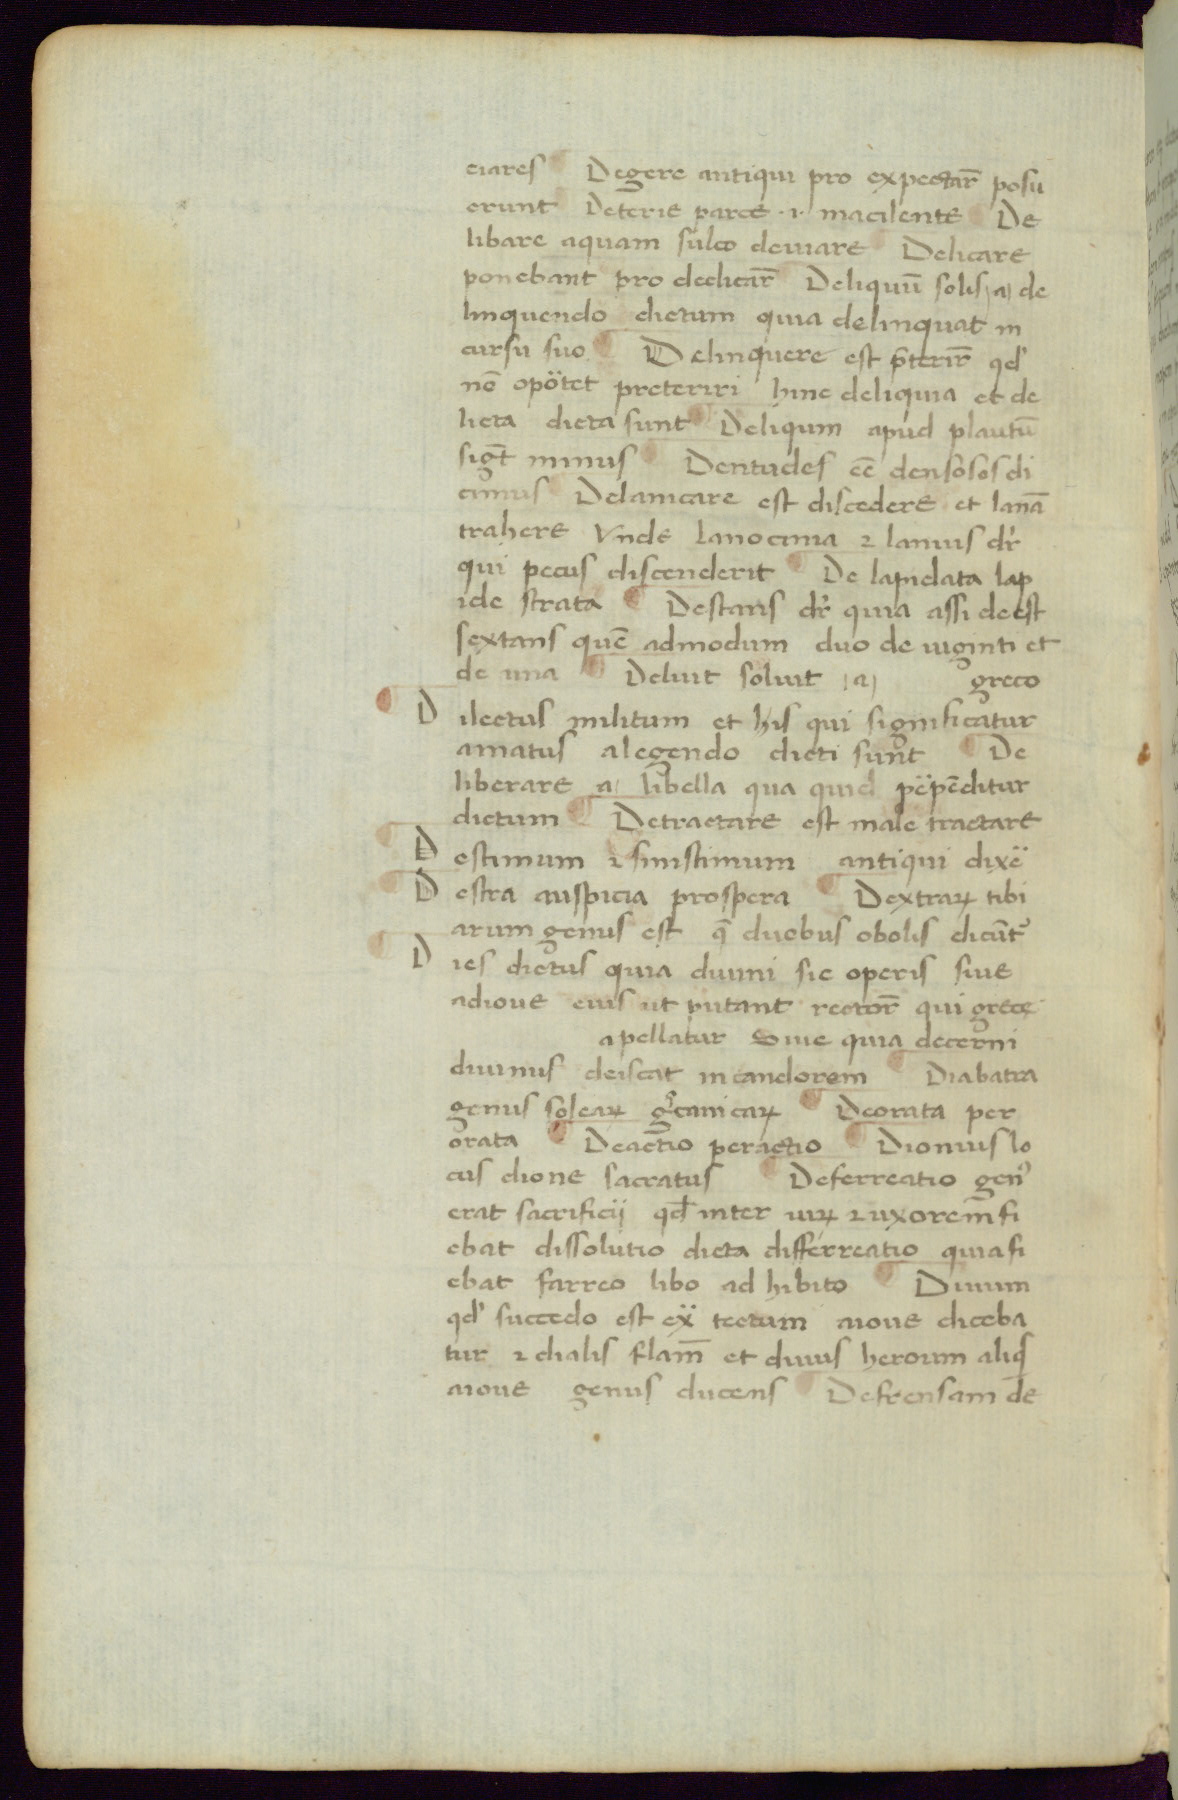 ciares Degere antiqui pro expectar̄ posu
erunt Deterie parce ·i· macilente De
libare aquam sulco deriuare Delicare
ponebant pro dedicar̄ Deliquiū solis a de
linquendo dictum quia delinquat in
cursu suo Delinquere est p̄terir̄ qd'
nō opötet preteriri hinc deliquia et de
licta dicta sunt Deliqum apud plautū
sigt̄ minus Dentudes eē densosos di
cimus Delanicare est discedere et lanā
trahere Vnde lanocinia ⁊ lanius dr̄
qui pecus discenderit De lapidata lap
ide strata Destans dr̄ quia assi deest
sextans quē admodum duo de uiginti et
de una Deluit soluit a greco
Dilectus militum et his qui significatur
amatus a legendo dicti sunt De
liberare a libella qua quid pëpēditur
dictum Detractare est male tractare
Destimum ⁊ sinistimum antiqui dixë
Destra auspicia prospera Dextraꝝ tibi
arum genus est q̄ duobus obolis dicūt᷑
Dies dictus quia diuini sic operis siue
adioue eius ut putant rector̄ qui grece
apellatur Siue quia decerni
diuinus deiscat in candorem Diabatra
genus soleaꝝ g᷑canicaꝝ Deorata per
orata Deactio peractio Dionius lo
cus dione sacratus Deferreatio gen᷒
erat sacrificij qd̄ inter uiꝝ ⁊ uxorem fi
ebat dissolutio dicta differreatio quia fi
ebat farreo libo ad hibito Diuum
qd' succedo est ex̄ tectum aioue diceba
tur ⁊ dialis flam̄ et diuus heroum aliq̄
aioue genus ducens Defrensam de